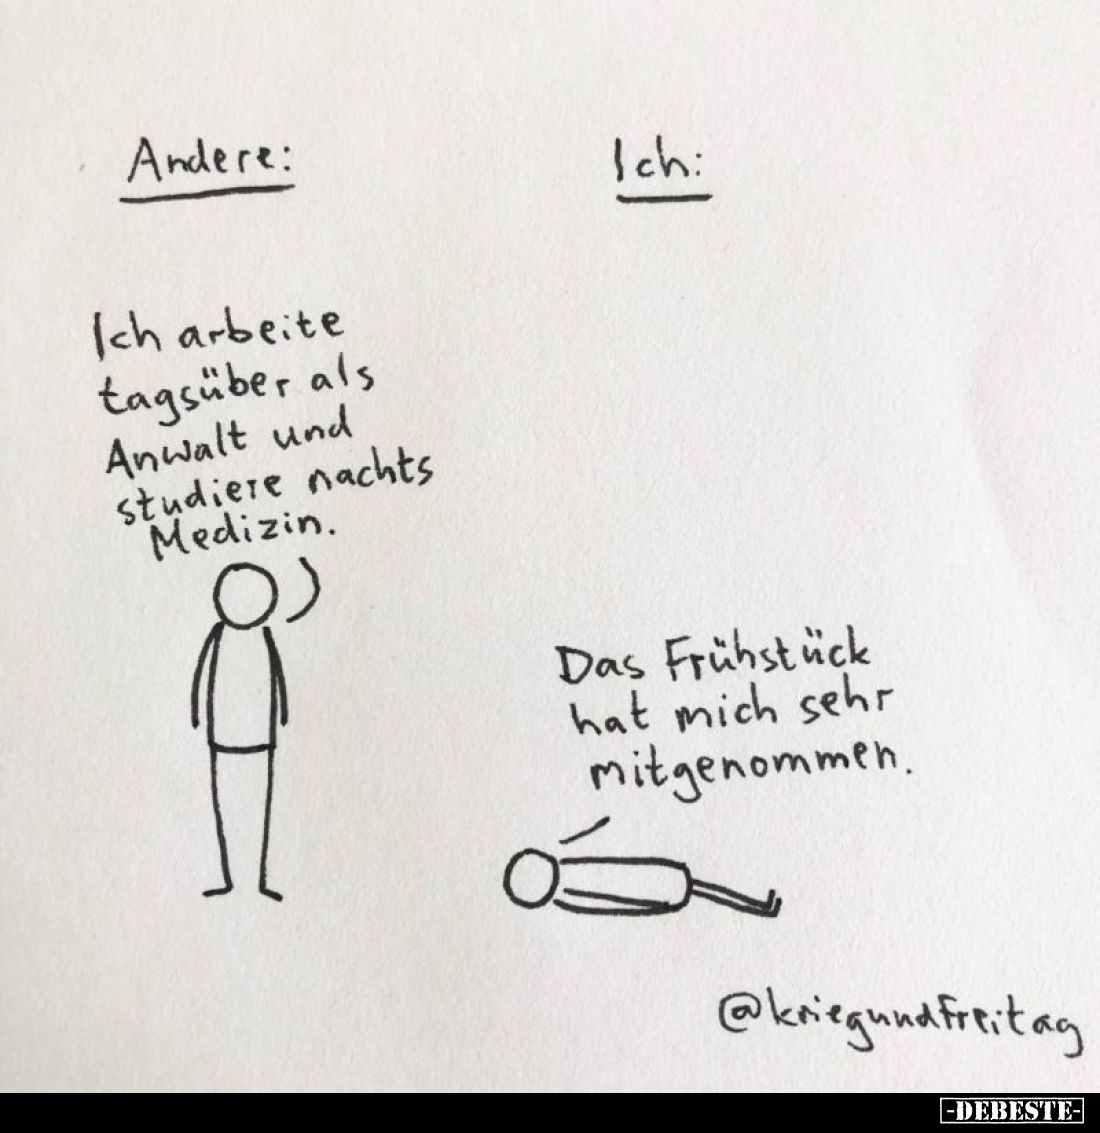 Andere:
Ich:
Ich arbeite
tagsüber als
Anwalt und
studiere nachts
Medizin.
Das Frühstück
hat mich sehr
mitgenommen.
@kriegundfreitag
-DEBESTE-